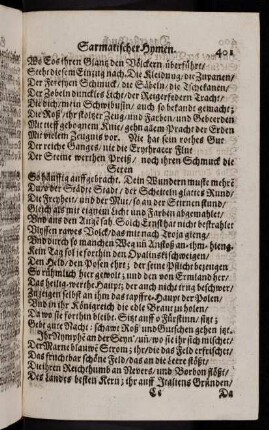 Sarmatischer Hymen. 401
Wo Eos ihren Glantz den Völckern überführet/
Seeht diesem Einzug nach. Die Kleidung/ die Zupanen/
Der Fereyen Schmuck/ die Säbeln/ die Tschekanen/
Der Zobeln dunckles Licht/ der Reigerfedern Tracht/
Die dich/ mein Schwibusin/ auch so bekandt gemacht:
Die Roß/ ihr stoltzer Zeug/ und Farben/ und Geberden
Mit tieff gebognem Knie/ gehn allem Pracht der Erden
Mit vielem Zeugnis vor. Nie hat sein rothes Gut
Der reiche Ganges/ nie die Erythraeer Flut
Der Steine werthen Preiß/ noch ihren Schmuck die
Seren
So häuffig auffgebracht. Dein Wundern muste mehrē
Du/ der Städte Stadt/ der Scheiteln glattes Rund/
Die Freyheit/ und der Mut/ so an der Sternen stund/
Gleich als mit eignem Licht und Farben abgemahlet/
Und aus den Augē sah. Solch Ernst hat nicht bestrahlet
Ulyssen rawes Volck/ das mit nach Troja gieng/
Und durch so manchen Weg un̄ Anstoß an ihm hieng.
Kein Tag sol je forthin den Opalinski schweigen/
Den Held/ den Posen ehrt; der seine Pflicht bezeugen
So rühmlich hier gewolt; und den von Ermland her/
Das heilig-werthe Haupt; der auch nicht trug beschwer/
Zu zeigen selbst an ihm das tapffre Haupt der Polen/
Und in ihr Königreich die edle Braut zu holen/
Da wo sie forthin bleibt. Sitz auff o Fürstinn/ sitz;
Gebt gute Nacht: schawt Roß und Gutschen gehen itzt.
Ihr Nymphē an der Seyn'/ uñ/ wo sie ihr sich mischet/
Der Marne blauwē Strom; ihr/ die das Feld erfrischet/
Das fruchtbar schöne Feld/ das an die
Die ihren Reichthumb an Nevers/ und Borbon
Des Landes besten Kern; ihr auff Italiens Gründen/
Cc Da